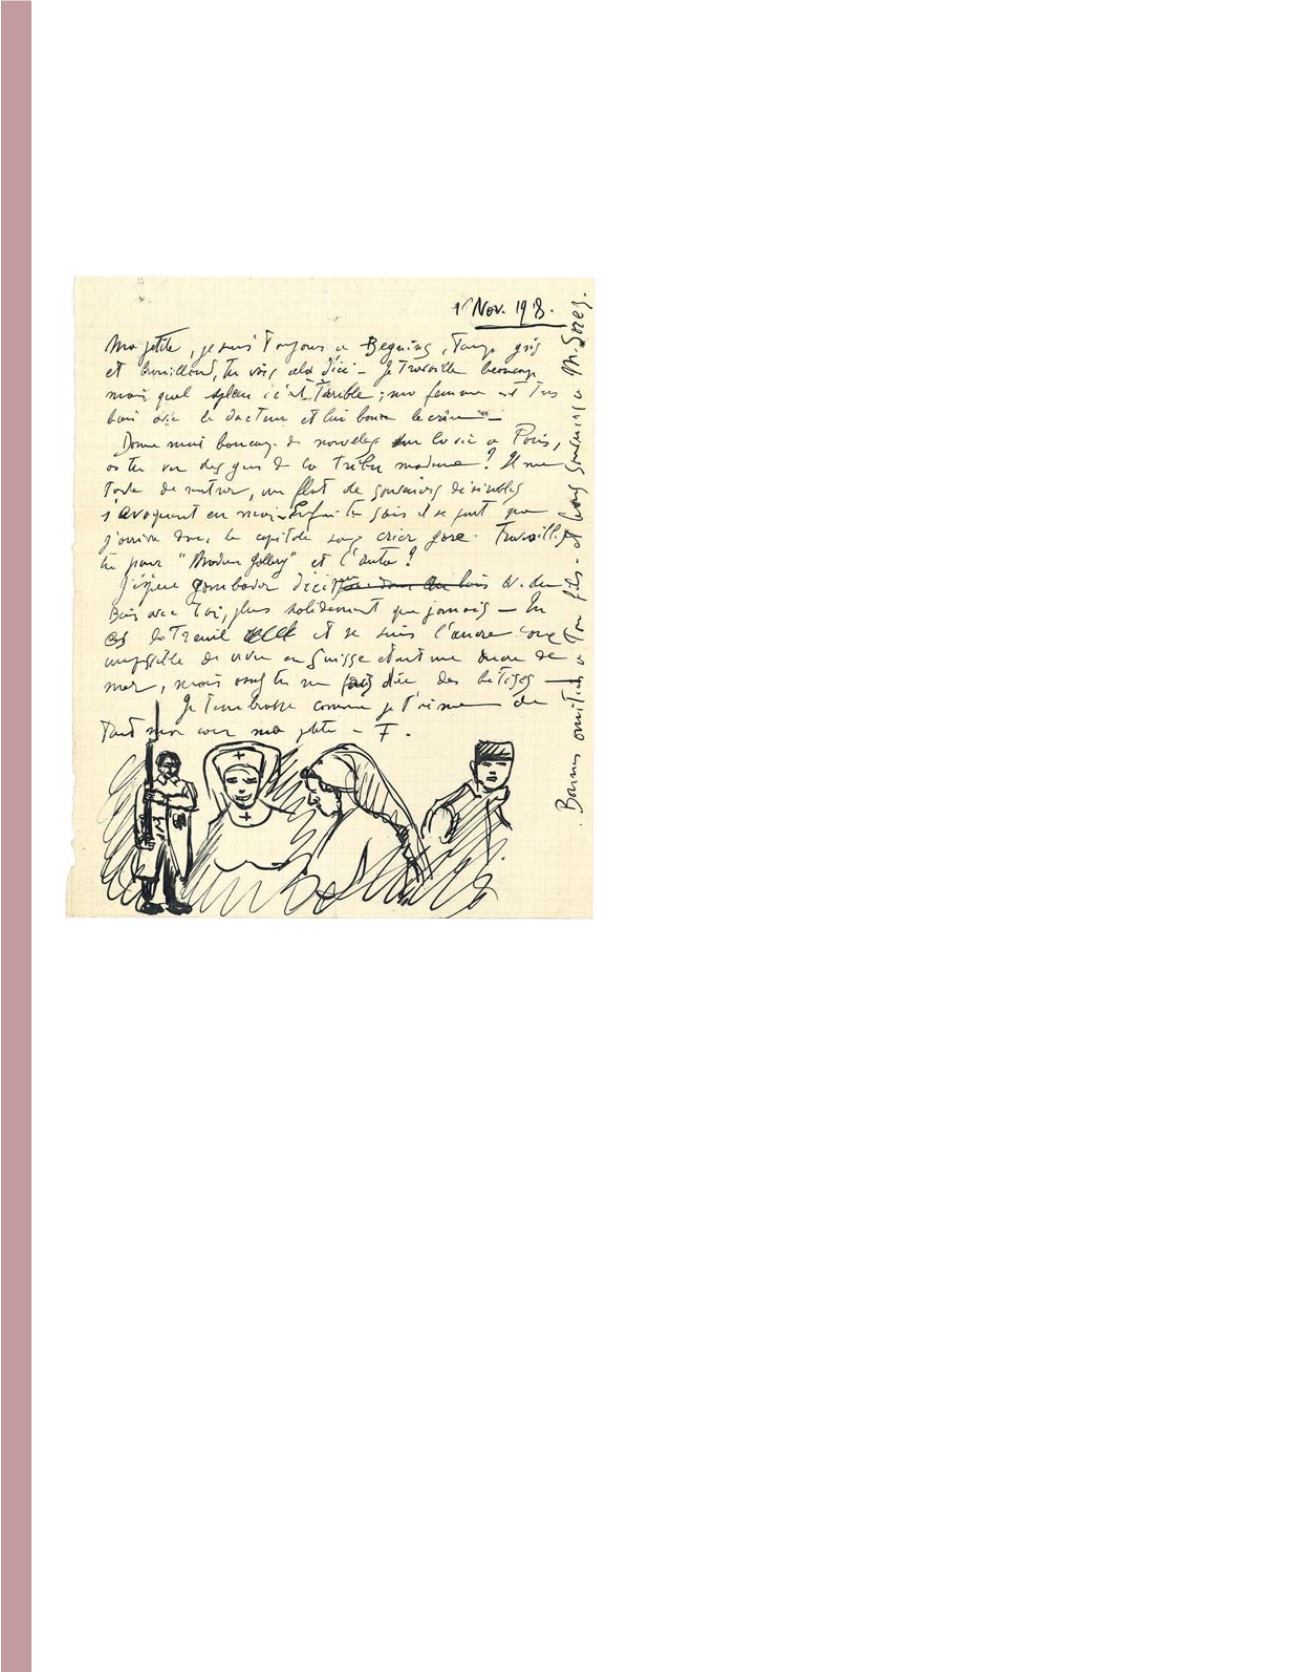 1 Nov. 1918.
Ma petite, je suis toujours a Begnins, temps gris
et brouillard, tu vois cela d'ici - Je travaille beaucoup
mais quel spleen c'est terrible ; ma femme est tres
bien avec le docteur et lui bourre le crâne -
Donne moi beaucoup de nouvelles sur la vie a Paris,
as tu vu des gens de la tribu moderne ? Il me
tarde de rentrer, un flot de souvenirs
s'évoquent en moi - Enfin tu sais il se peut que
j'arrive dans la capitale sans crier gare. Travailles
tu pour "Modern Gallery" et l'auto ?
J'espere gambader d'ici au
Bois avec toi, plus solidement que jamais - Tu
es le treuil et je suis l'ancre
impossible de vivre en Suisse etant une ancre de
mer, mais tu me fais dire des betises -
Je t'embrasse comme je t'aime de
tout mon cœur ma petite - F.
Bonnes amities a ton fils - et bons souvenirs a M.